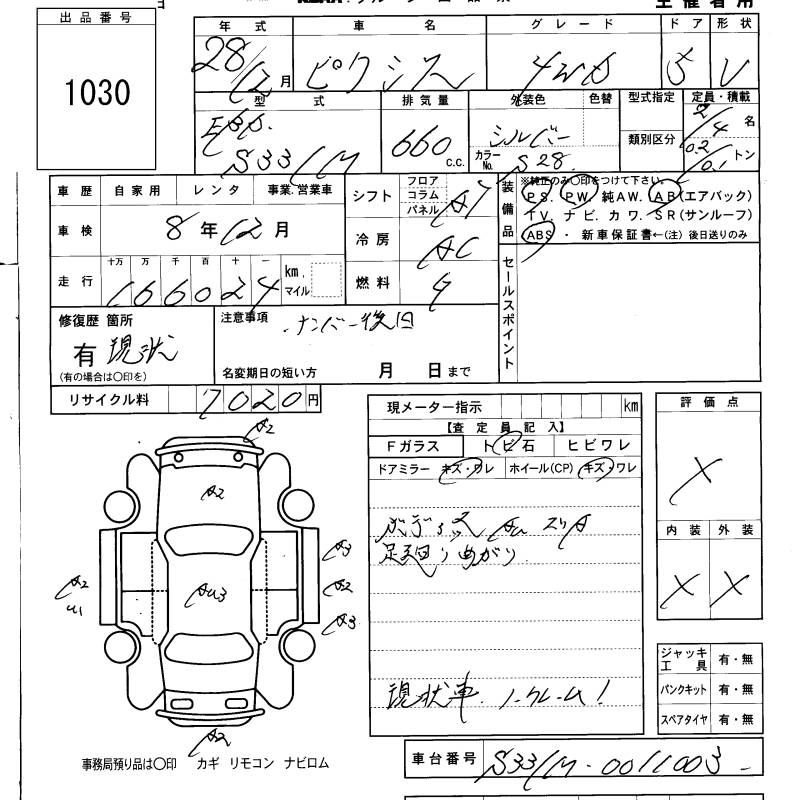 出品番号
1030
年式 車名 グレード ドア 形状
28/12月 ピクシス 4WD 5 V
型式 排気量 外装色 色替 型式指定 定員・積載
EBD. S331M 660 c.c. シルバー カラーNo. S28 類別区分 2/4名 0.2/0.1トン
車歴 自家用 レンタ 事業.営業車
シフト フロア コラム パネル AT
装備品 ※純正のみ〇印をつけて下さい。
PS. PW. 純AW. AB(エアバック)
TV. ナビ. カワ. SR(サンルーフ)
ABS ・ 新車保証書←(注) 後日送りのみ
車検 8年12月
冷房 AC
走行 十万 万 千 百 十 一 km. マイル
166024
燃料 G
セールスポイント
修復歴 箇所
有 現状
(有の場合は〇印を)
注意事項 ナンバー後日
名変期日の短い方 月 日まで
リサイクル料 7020円
現メーター指示 km
【査定員記入】
Fガラス トビ石 ヒビワレ
ドアミラー キズ・ワレ ホイール(CP) キズ・ワレ
評価点
X
内装 外装
X X
A2
A2
A3
A2 U1
AU3
A2
A3
A2
ボディ大 AU スリA
足廻りめがり
現状車 ノークレーム!
ジャッキ工具 有・無
パンクキット 有・無
スペアタイヤ 有・無
事務局預り品は〇印 カギ リモコン ナビロム
車台番号 S331M-0011003